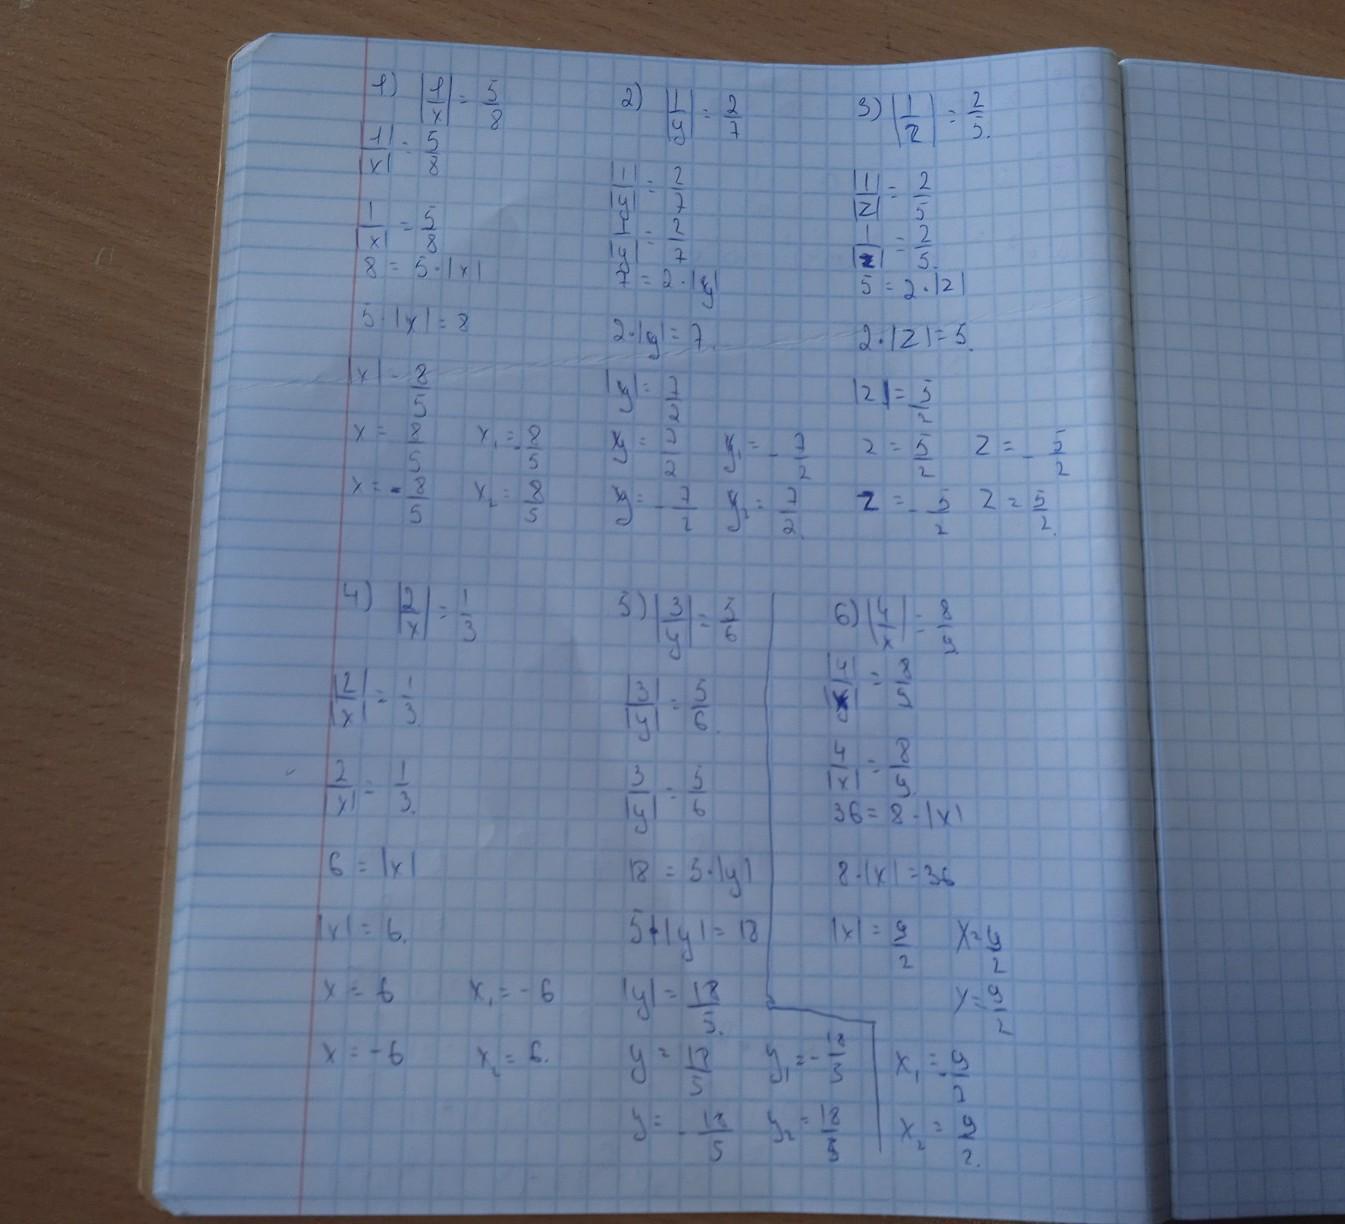 1) |1/x| = 5/8
|1|/|x| = 5/8
1/|x| = 5/8
8 = 5·|x|
5·|x| = 8
|x| = 8/5
x = 8/5 x₁ = -8/5
x = -8/5 x₂ = 8/5
2) |1/y| = 2/7
|1|/|y| = 2/7
1/|y| = 2/7
7 = 2·|y|
2·|y| = 7.
|y| = 7/2
y = 7/2 y₁ = -7/2
y = -7/2 y₂ = 7/2.
3) |1/z| = 2/5.
|1|/|z| = 2/5
1/|z| = 2/5.
5 = 2·|z|
2·|z| = 5.
|z| = 5/2
z = 5/2 z = -5/2
z = -5/2 z = 5/2.
4) |2/x| = 1/3
|2|/|x| = 1/3.
2/|x| = 1/3.
6 = |x|
|x| = 6.
x = 6 x₁ = -6
x = -6 x₂ = 6.
5) |3/y| = 5/6
|3|/|y| = 5/6.
3/|y| = 5/6
18 = 5·|y|
5·|y| = 18
|y| = 18/5.
y = 18/5 y₁ = -18/5
y = -18/5 y₂ = 18/5
6) |4/x| = 8/9
|4|/|x| = 8/9
4/|x| = 8/9.
36 = 8·|x|
8·|x| = 36
|x| = 9/2 x = 9/2
x = -9/2
x₁ = -9/2
x₂ = 9/2.